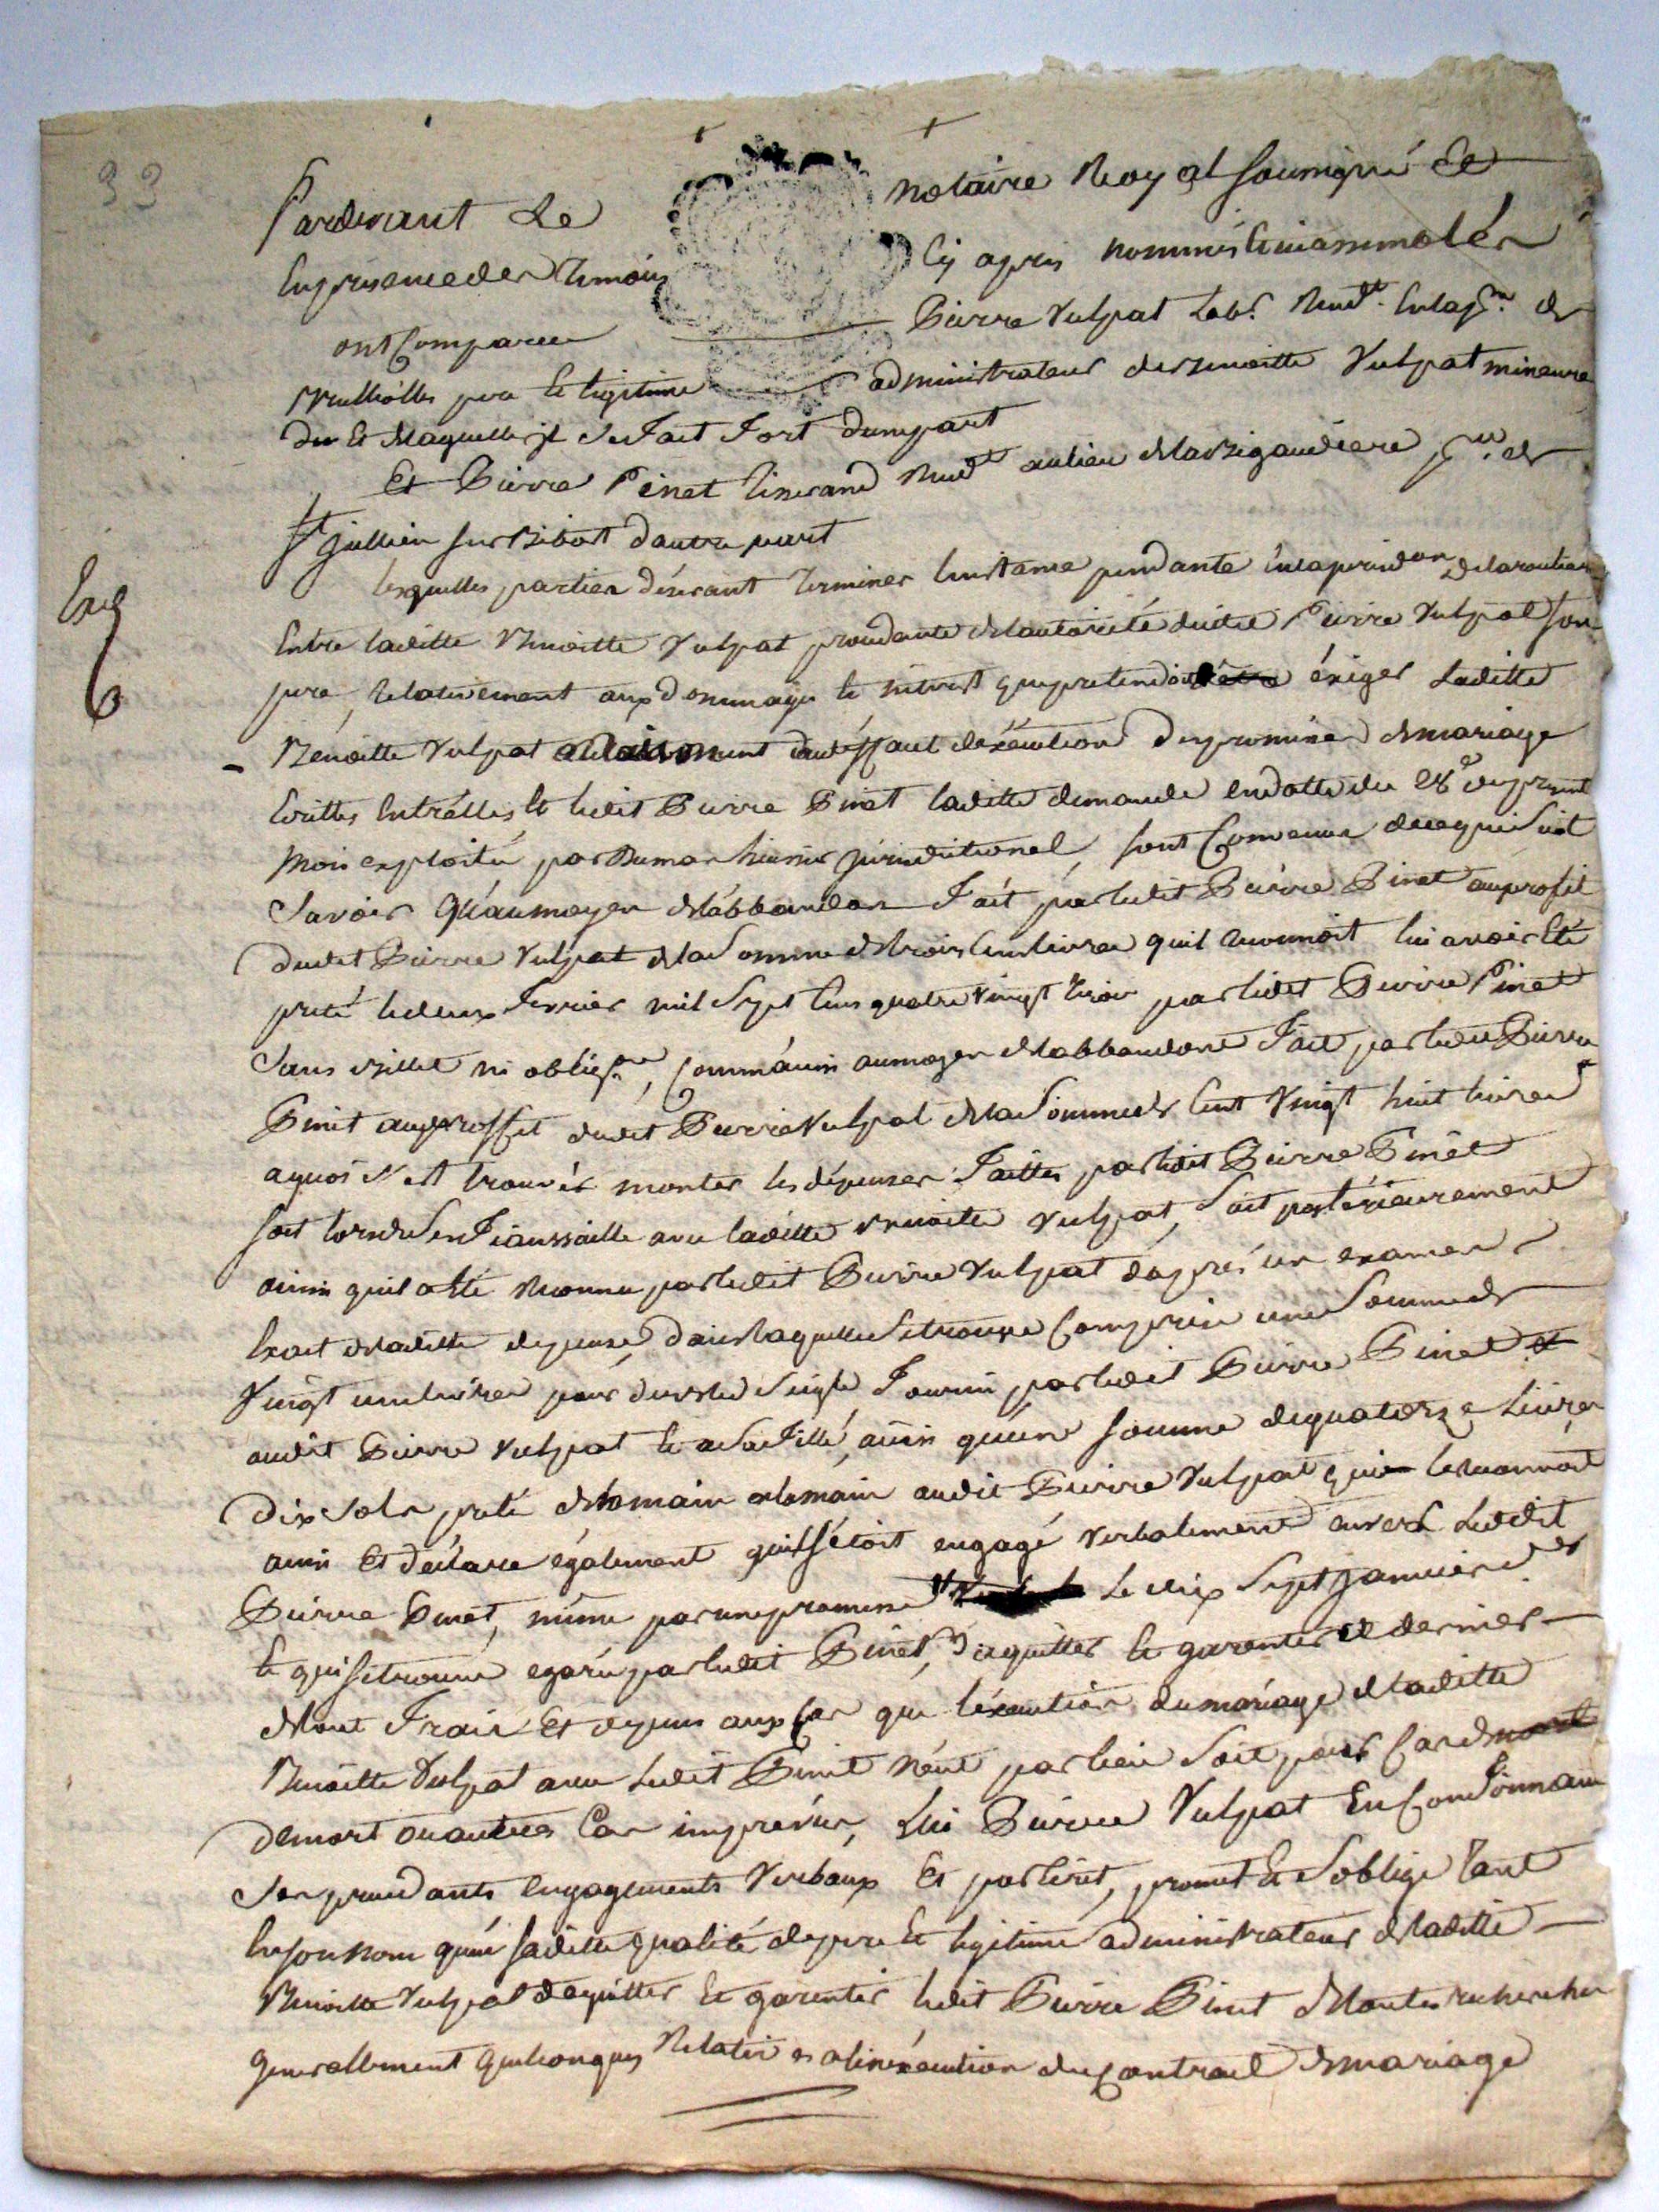 33
Pardevant Le notaire Royal soussigné Et
En presence des temoins Cy apres nommés
ont Comparu Pierre Vulpat Lab.r
pere Et legitime administrateur de Benoitte Vulpat mineure
de Laquelle il se fait fort dunepart
Et Pierre Pinet tisserand au lieu p.sse de
St Jullien sur Bibost dautre part
Lesquelles parties désirant terminer linstance pendante
Entre laditte Benoitte Vulpat procedante de lautorité dudit Pierre Vulpat son
pere, Relativement aux dommages Et interest que pretendoit éxiger Laditte
Benoitte Vulpat deffaut déxécution des promesses de mariage
Ecrittes Entrelles Et ledit Pierre Pinet laditte demande en datte du 28e du present
Mois exploitée par Dumas huissier, sont Convenues de ce qui suit
Savoir Qu'au moyen de l'abbandon fait par ledit Pierre Pinet au profit
dudit Pierre Vulpat de la Somme de trois Cens livres quil reconnoit lui avoir Eté
preté le deux fevrier mil Sept Cens quatre vingt trois par ledit Pierre Pinet
Sans billet ni oblig.on, Comm'aussi au moyen de labbandon fait par ledit Pierre
Pinet au proffit dudit Pierre Vulpat de la Somme de Cent Vingt huit livres
aquoi s'est trouvés monter les dépenses faittes par ledit Pierre Pinet
soit lors de Ses fiançaille avec laditte Benoitte Vulpat, Soit postérieurement
ainsi quil a Eté Reconnu par ledit Pierre Vulpat dapres un examen
Exact de laditte depense, dans laquelle Se trouve Comprise une Somme de
Vingt une livres pour du bled Seigle fourni par ledit Pierre Pinet
audit Pierre Vulpat Et a Sa fille, ainsi qu'une somme de quatorze Livres
Dix Sols preté de la main a la main audit Pierre Vulpat qui le reconnoit
ainsi Et déclare également quil s'étoit engagé verbalement envers Ledit
Pierre Pinet, même par une promesse Le dix Sept Janvier d.er
Et qui se trouve egarée par ledit Pinet, d'aquitter Et garentir ce dernier
de tout frais Et depens au Cas que léxécution du mariage de laditte
Benoitte Vulpat avec Ledit Pinet n'eut pas lieu Soit pour Cas
de mort ou autres Cas imprévus, Lui Pierre Vulpat En Confirmant
Ses precedants Engagements Verbaux Et par Ecrit, promet Et S'oblige tant
En son nom qu'en saditte qualité de pere Et legitime administrateur de laditte
Benoitte Vulpat daquitter Et garentir ledit Pierre Pinet de toutes recherches
generallement quelconques Relatives a linexécution du Contrat de mariage